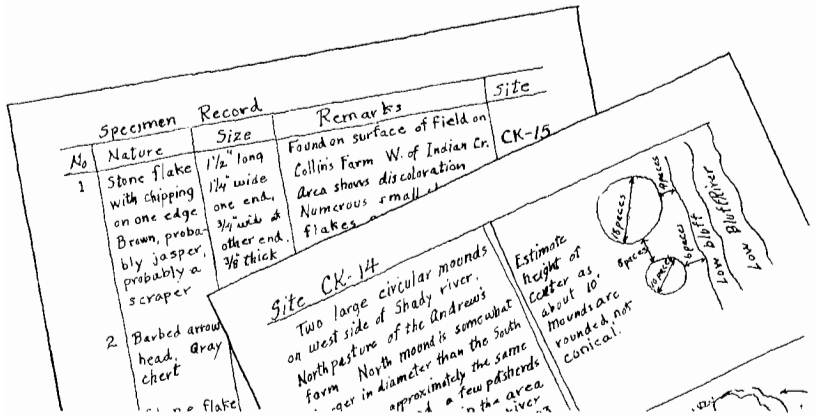 Specimen Record
No Nature Size Remarks Site
1 Stone flake
with chipping
on one edge
Brown, proba-
bly jasper,
probably a
scraper
1½" long
1¼" wide
one end,
¾" wide at
other end.
⅜ thick
Found on surface of field on
Collins Farm W. of Indian Cr.
Area shows discoloration
Numerous small
flakes
CK-15
2 Barbed arrow
head, Gray
chert
flake
Site CK-14
Two large circular mounds
on west side of Shady river.
North pasture of the Andrews
farm North mound is somewhat
in diameter than the South
approximately the same
a few potsherds
in the area
river
Estimate
height of
center as
about 10'.
Mounds are
rounded, not
conical.
18 paces
9 paces
8 paces
10 paces
6 paces
Low bluff
River
Low Bluff